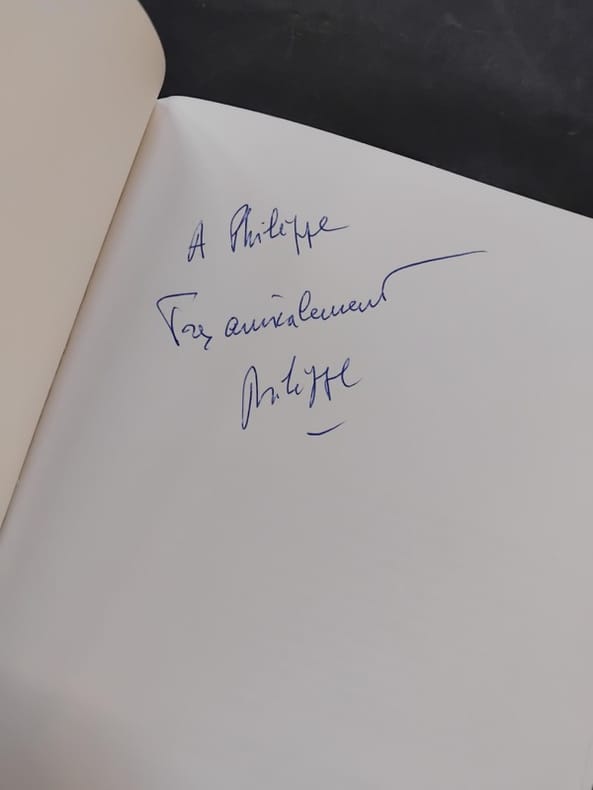 A Philippe
Très amicalement
Philippe